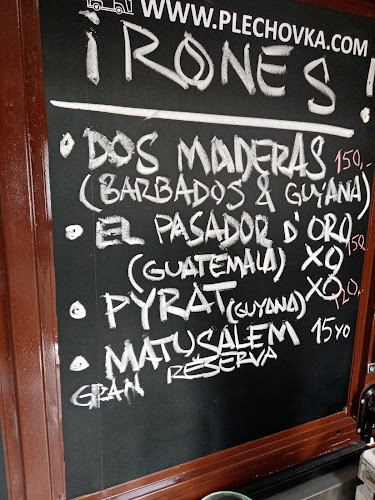 WWW.PLECHOVKA.COM
¡RONES!
• DOS MADERAS 150,-
(BARBADOS & GUYANA)
• EL PASADOR D'ORO
(GUATEMALA) XO 150
• PYRAT (GUYANA) XO 120,
• MATUSALEM 15YO
GRAN RESERVA